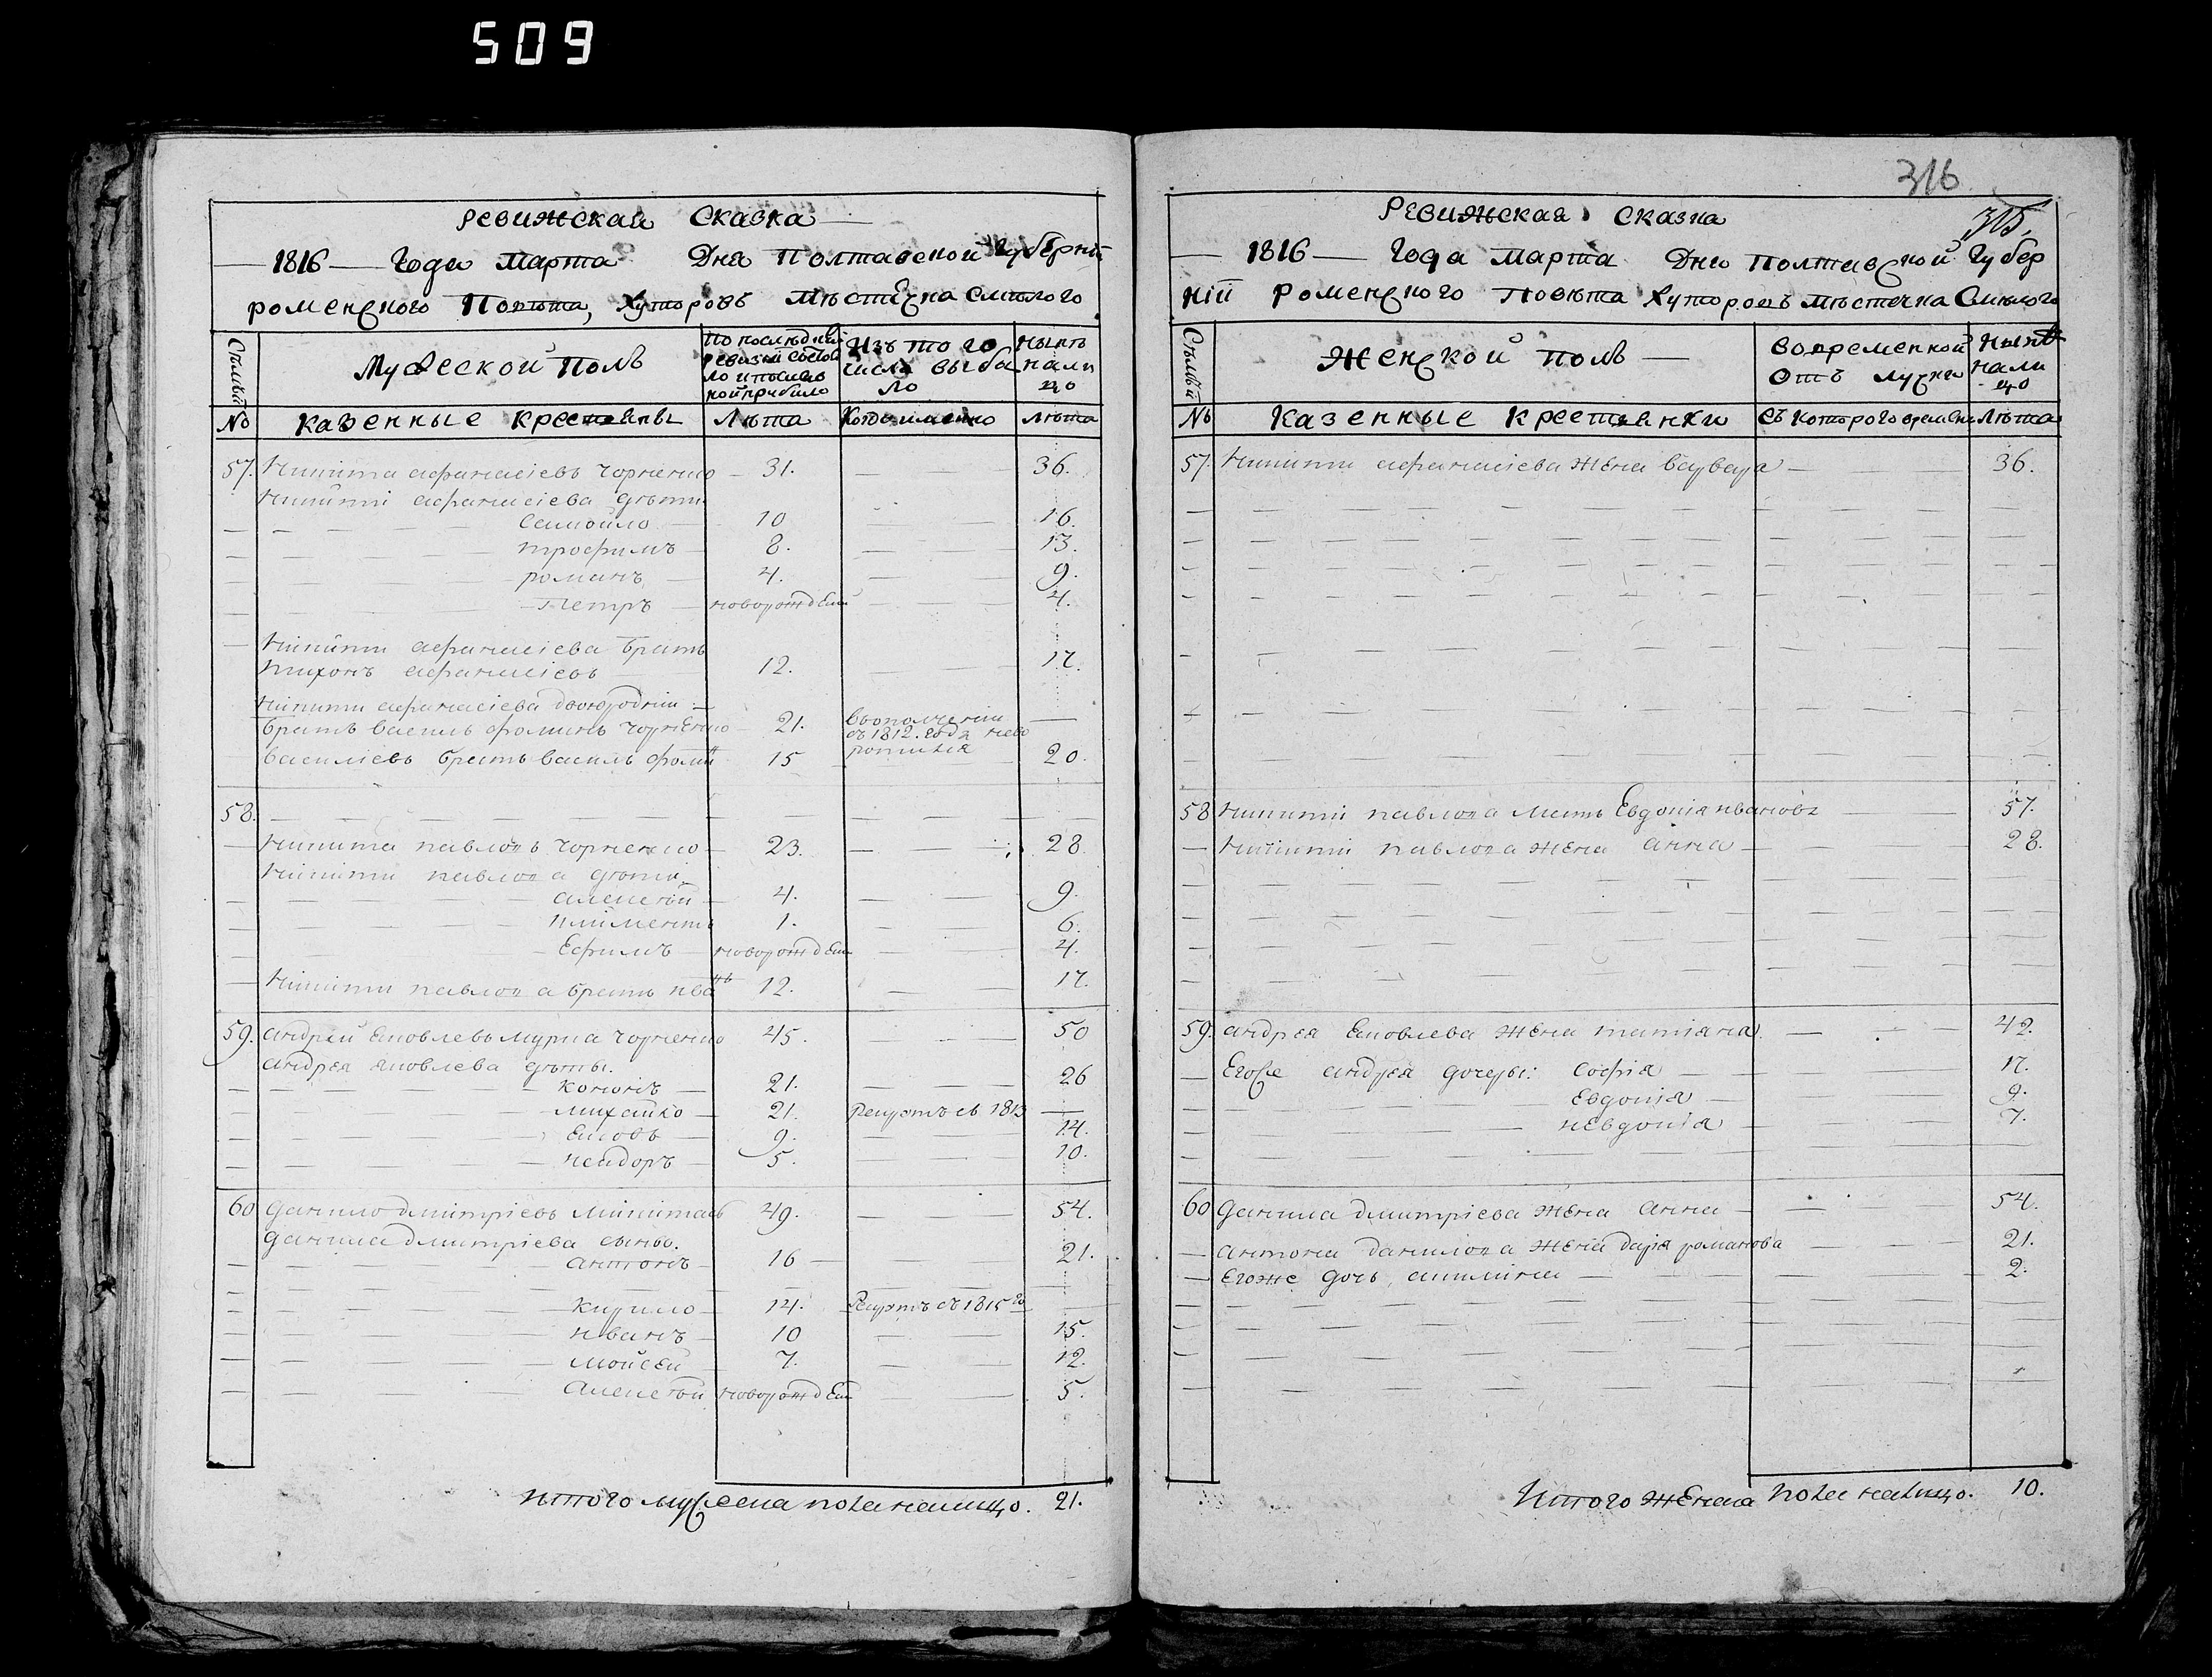 509
Ревижская Сказка
1816 Года Марта Дня Полтавской Губернiи
роменского Повѣта, Хуторовъ Мѣстечка Смѣлого
Мужеской Полъ
По последней ревизiи состояло и после оной прибыло
Изъ того числа выбыло
Нынѣ налицо
Семьи
№ Казенные крестьяны Лѣта Когда именно Лѣта
57. Никита афанасiевъ Чорненко 31. 36.
Никити афанасiева дѣти
Самойло 10 16.
трофимъ 8. 13.
романъ 4. 9.
Петръ новорожден 4.
Никити афанасiева братъ
тихонъ афанасiевъ 12. 17.
Никити афанасiева двоюродни
братъ василь фоминъ Чорненко 21. вьополченiи
съ 1812. года нево
ротился
василiевъ братъ василь фоминъ 15 20.
58.
Никита павловъ Чорненко 23. 28
Никити павлова дѣти
алексѣй 4. 9.
климентъ 1. 6.
Ефимъ новорожден 4.
Никити павлова братъ иванъ 12. 17.
59. андрей Яковлевъ мурка Чорненко 45. 50
андрея яковлева дѣты.
кононъ 21. 26
михайко 21. рекрутъ съ 1813
Яковъ 9. 14.
исидоръ 5. 10.
60 данило дмитрiевъ Микитавъ 49. 54.
данила дмитрiева сыны.
антонъ 16 21.
Кирило 14. Рекрутъ съ 1815 го
иванъ 10 15.
мойсей 7. 12.
алексѣй новорожден 5.
Итого мужеска пола налицо. 21.
316
315,
Ревижская Сказка
1816 Года Марта Дня Полтавской Губер
нiй Роменского Повѣта Хуторовъ Мѣстечка Смѣлого
Семьи
Женской полъ
Вовременной отъ лучки
Нынѣ налицо
№ Казенные крестьянки Съ которого времени Лѣта
57. Никити афанасiева жена варвара 36.
58 Никити павлова мать Евдокiя иванова 57.
Никити павлова жена анна 28.
59. андрея Яковлева жена татiяна 42.
Егоже андрея дочеры: Софiя 17.
Евдокiя 9.
иевдокiя 7.
60 данила дмитрiева жена анна 54.
антона данилова жена дарiя романова 21.
егоже дочь акилина 2.
Итого женска пола налицо. 10.